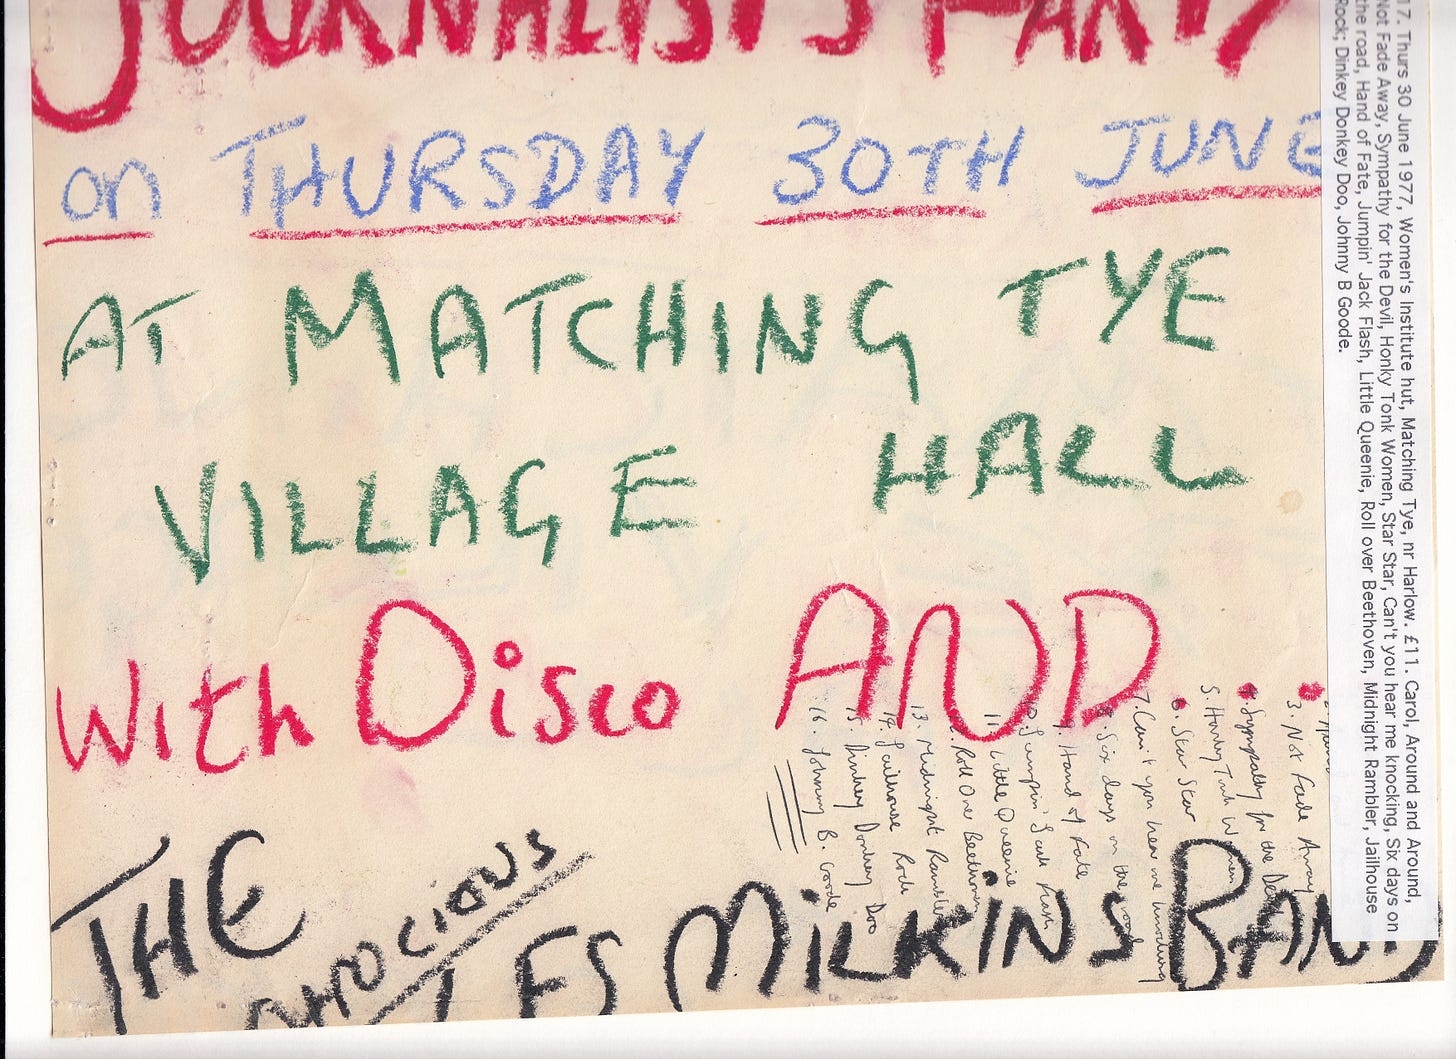 JOURNALIST'S PARTY
on THURSDAY 30TH JUNE
AT MATCHING TYE
VILLAGE HALL
with Disco AND...
THE
LES MILKINS BAND
17. Thurs 30 June 1977, Women's Institute hut, Matching Tye, nr Harlow. £11. Carol, Around and Around,
Not Fade Away, Sympathy for the Devil, Honky Tonk Women, Star Star, Can't you hear me knocking, Six days on
the road, Hand of Fate, Jumpin' Jack Flash, Little Queenie, Roll over Beethoven, Midnight Rambler, Jailhouse
Rock; Dinkey Donkey Doo, Johnny B Goode.
3. Not Fade Away
4. Sympathy for the Devil
5. Honky Tonk Women
6. Star Star
7. Can't you hear me knocking
8. Six days on the road
9. Hand of Fate
10. Jumpin' Jack Flash
11. Little Queenie
12. Roll Over Beethoven
13. Midnight Rambler
14. Jailhouse Rock
15. Dinkey Donkey Doo
16. Johnny B. Goode